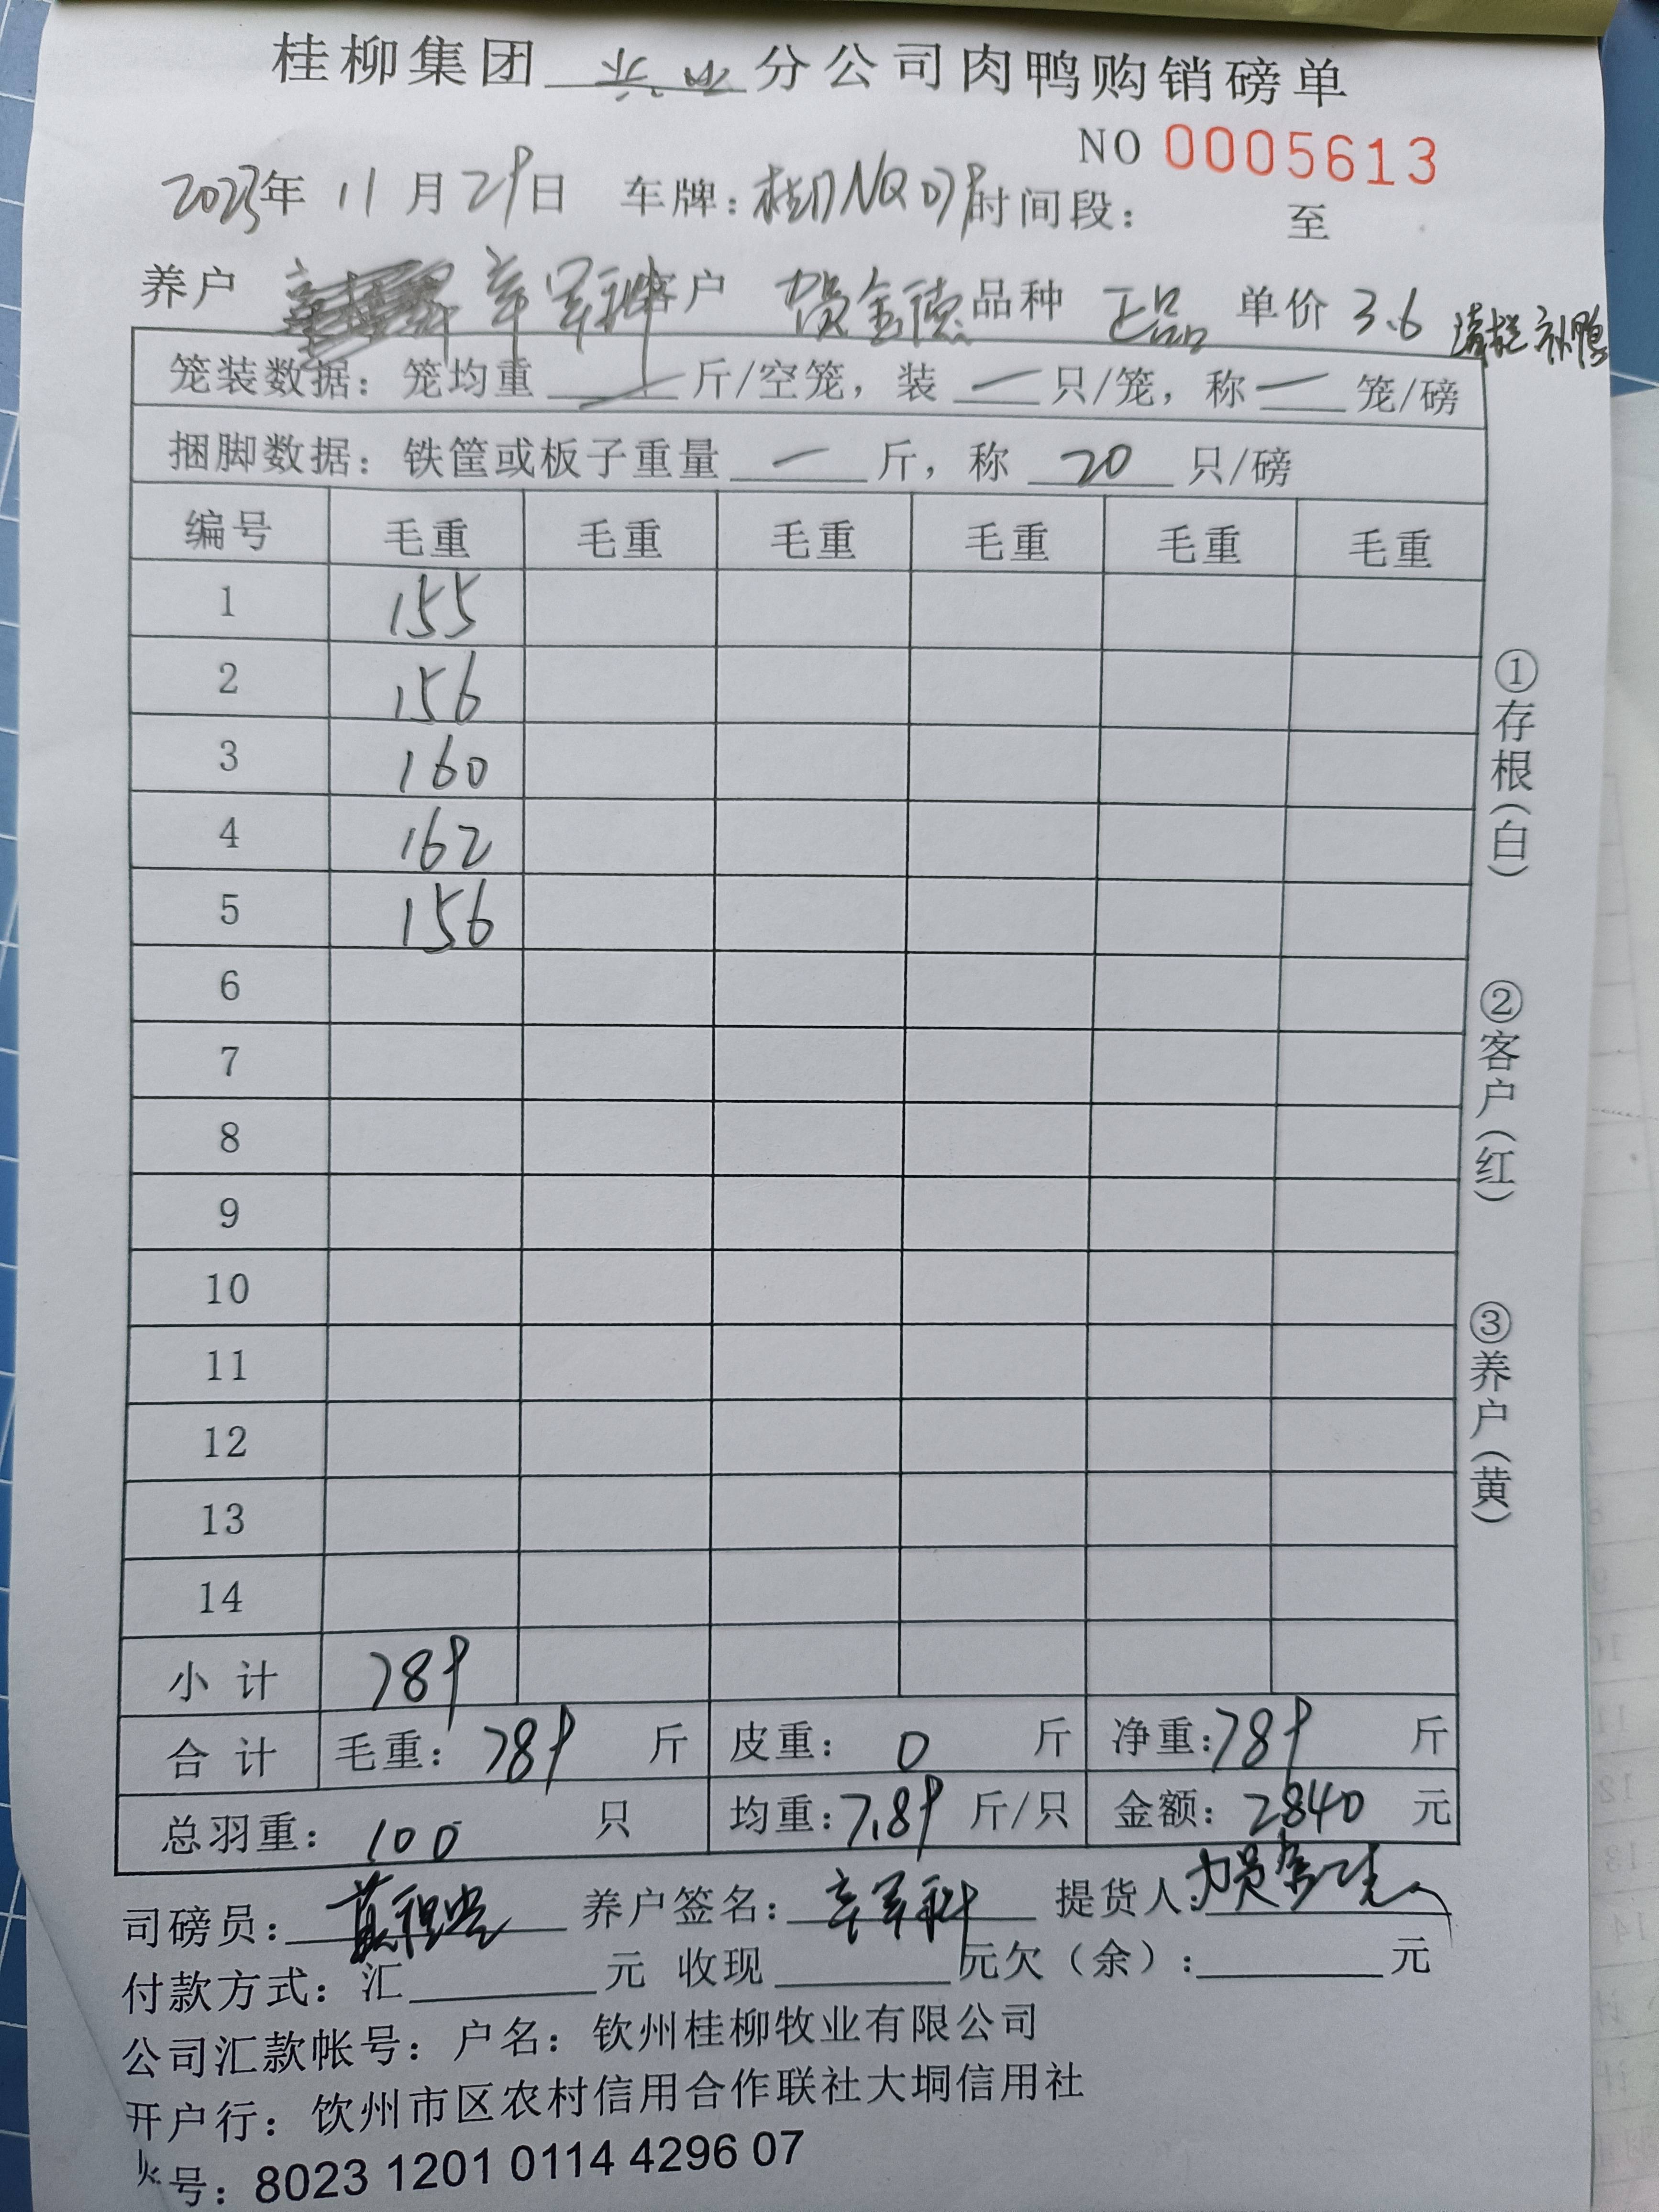 桂柳集团 分公司肉鸭购销磅单
NO 0005613
2023年 11 月 29日 车牌: 时间段: 至
养户 客户 贺金德 品种 正品 单价 3.6 清栏 补鸭
笼装数据: 笼均重 — 斤/空笼, 装 — 只/笼, 称 — 笼/磅
捆脚数据: 铁筐或板子重量 — 斤, 称 20 只/磅
编号 毛重 毛重 毛重 毛重 毛重 毛重
1 155
2 156
3 160
4 162
5 156
6
7
8
9
10
11
12
13
14
小 计 789
合 计 毛重: 789 斤 皮重: 0 斤 净重: 789 斤
总羽重: 100 只 均重: 7.89 斤/只 金额: 2840 元
司磅员: 养户签名: 提货人:
付款方式: 汇 元 收现 元欠(余): 元
公司汇款帐号: 户名: 钦州桂柳牧业有限公司
开户行: 钦州市区农村信用合作联社大垌信用社
号: 8023 1201 0114 4296 07
①存根(白)
②客户(红)
③养户(黄)